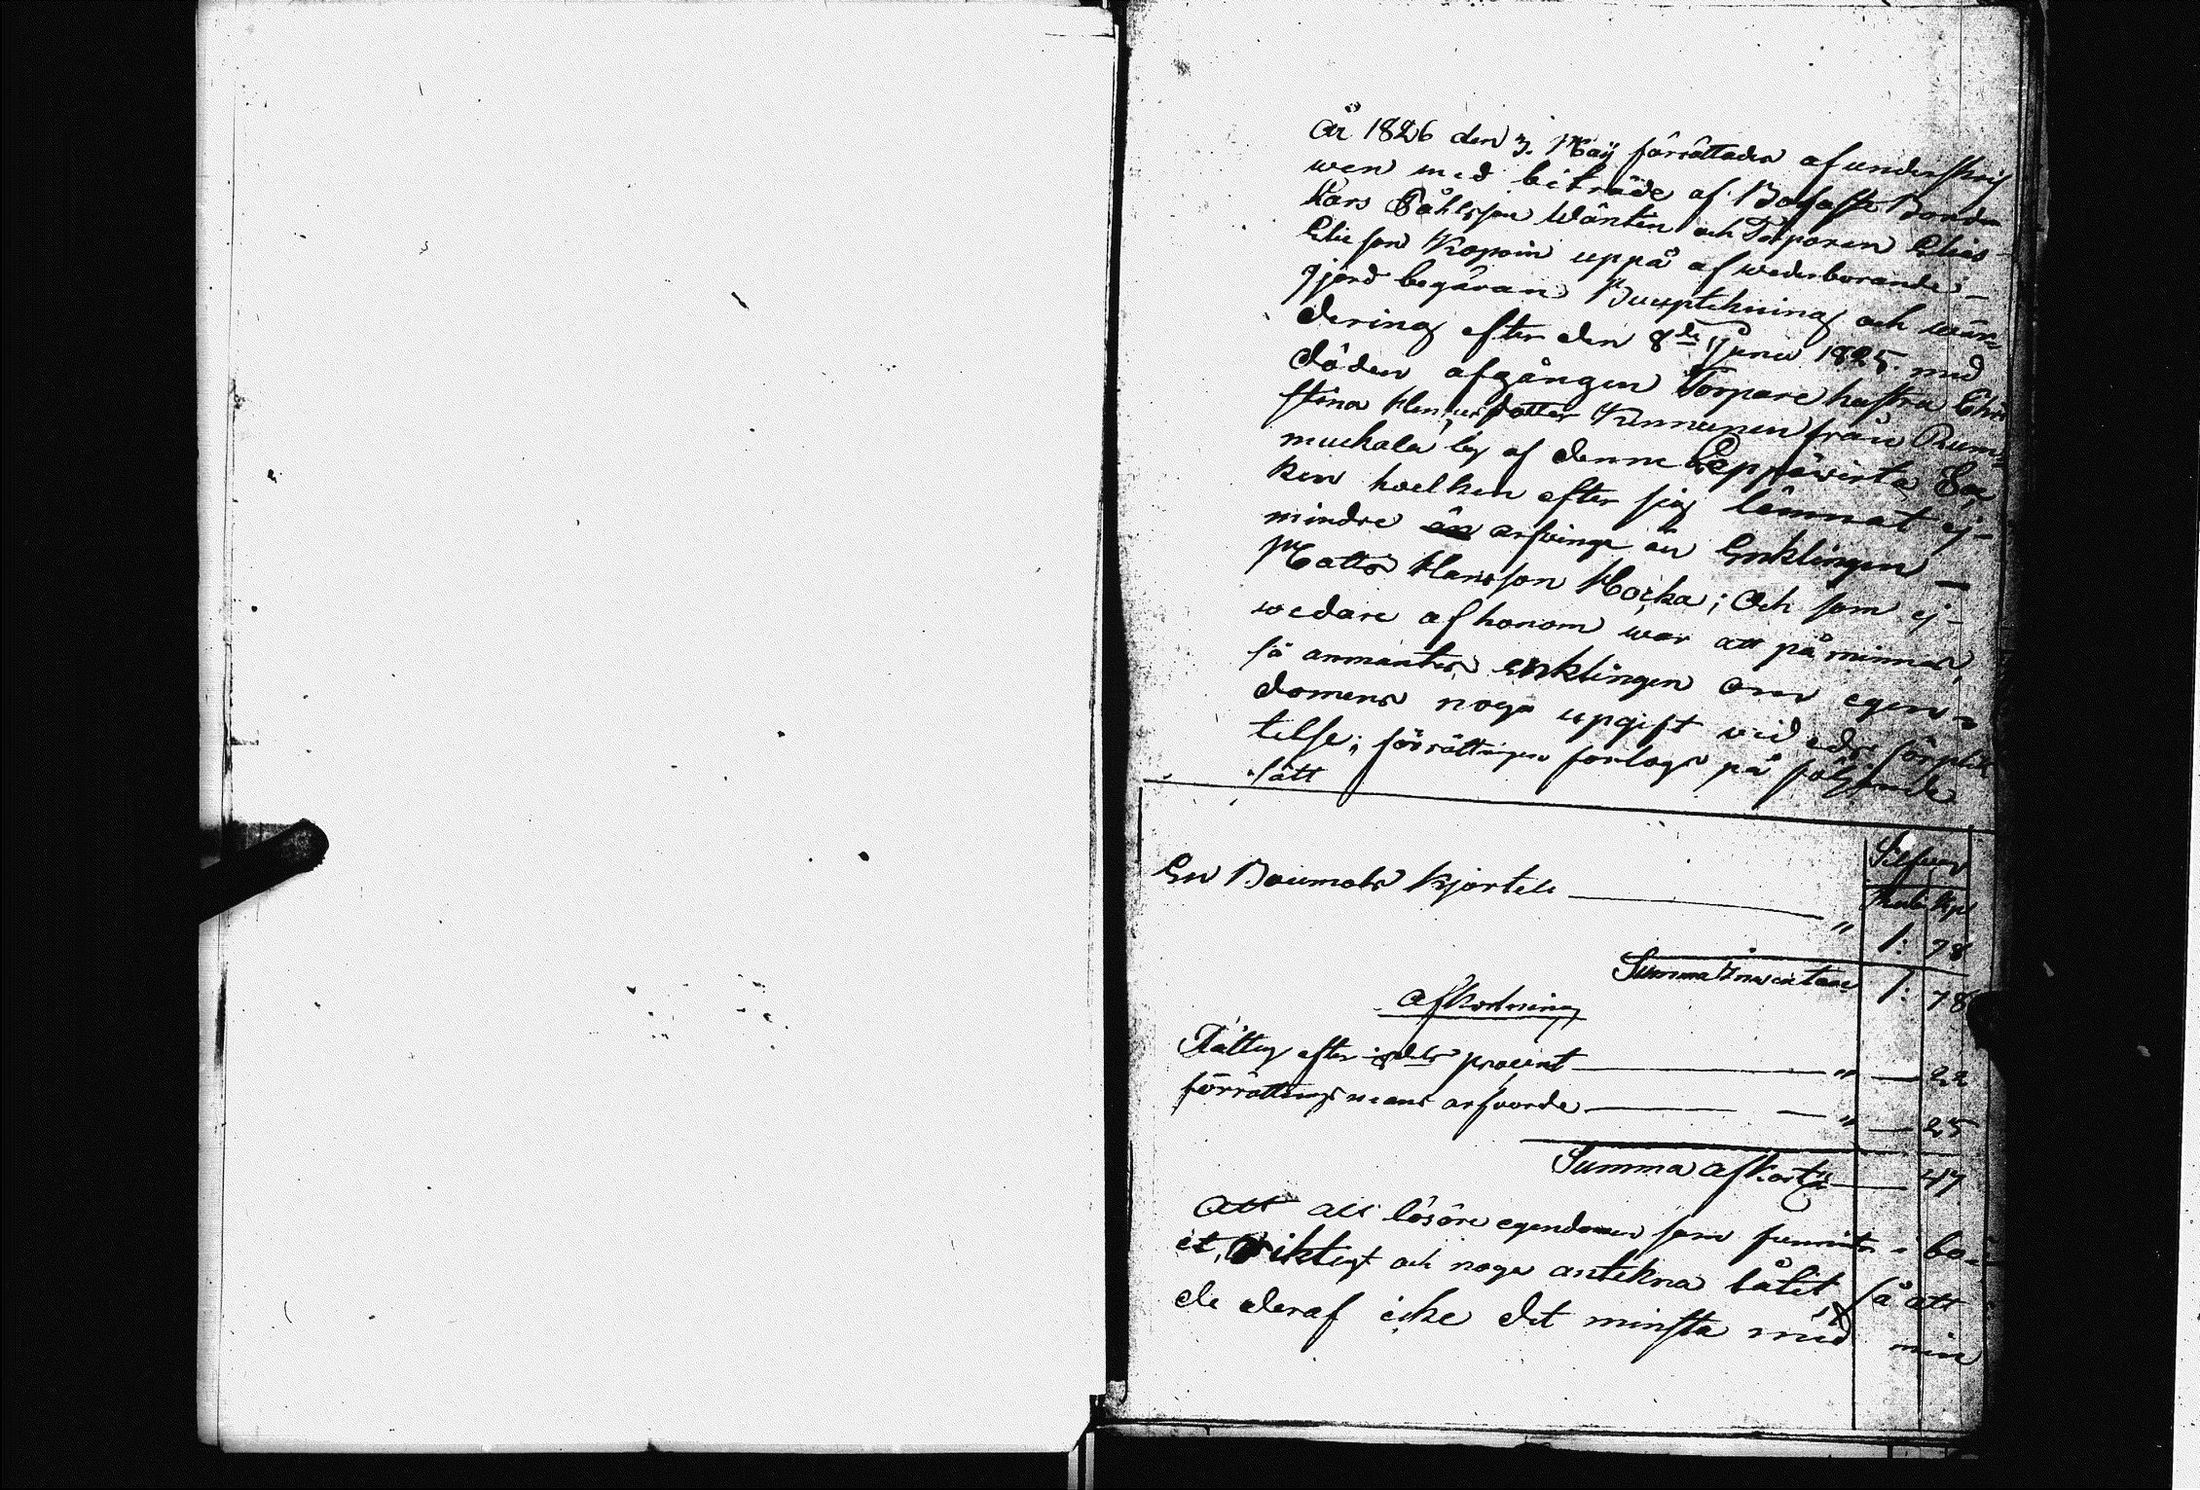 År 1826 den 3. Maij förrättades af underskrif
wen med biträde af Bofaste Bonden
Lars Påhlsson Wänttin och Torparen Elias
Eliesson Kopoin uppå af wederborande
gjord begäran Bouptekning och wär-
dering efter den 8de Junii 1825. med
döden afgångne Torpare hustru Chri
stina Henricsdotter Kinnunen från
muckala by af denne Leppäwirta Soc
ken hwelken efter sig lämnat ej
mindre arfvinge än Enklingen
Matts Hansson Hocka; Och som ej
wedare af honom war att påminnas,
så anmantes enklingen om egen-
domens noga upgift vid eds förplik
telse; förrättningen forlags på följande
sätt
Silfver
Rub: Kp
En Boumols Kjortell " 1: 78
Summa Inventarie 1: 78
Afkortning
Fattig efter procent " — 22
förrättnings mans arfvorde " — 25
Summa afkortn — 47
Att all lösöre egendomen som funnits i bo-
et, riktigt och noga antekna låtit, så att
de deraf icke det minsta med min